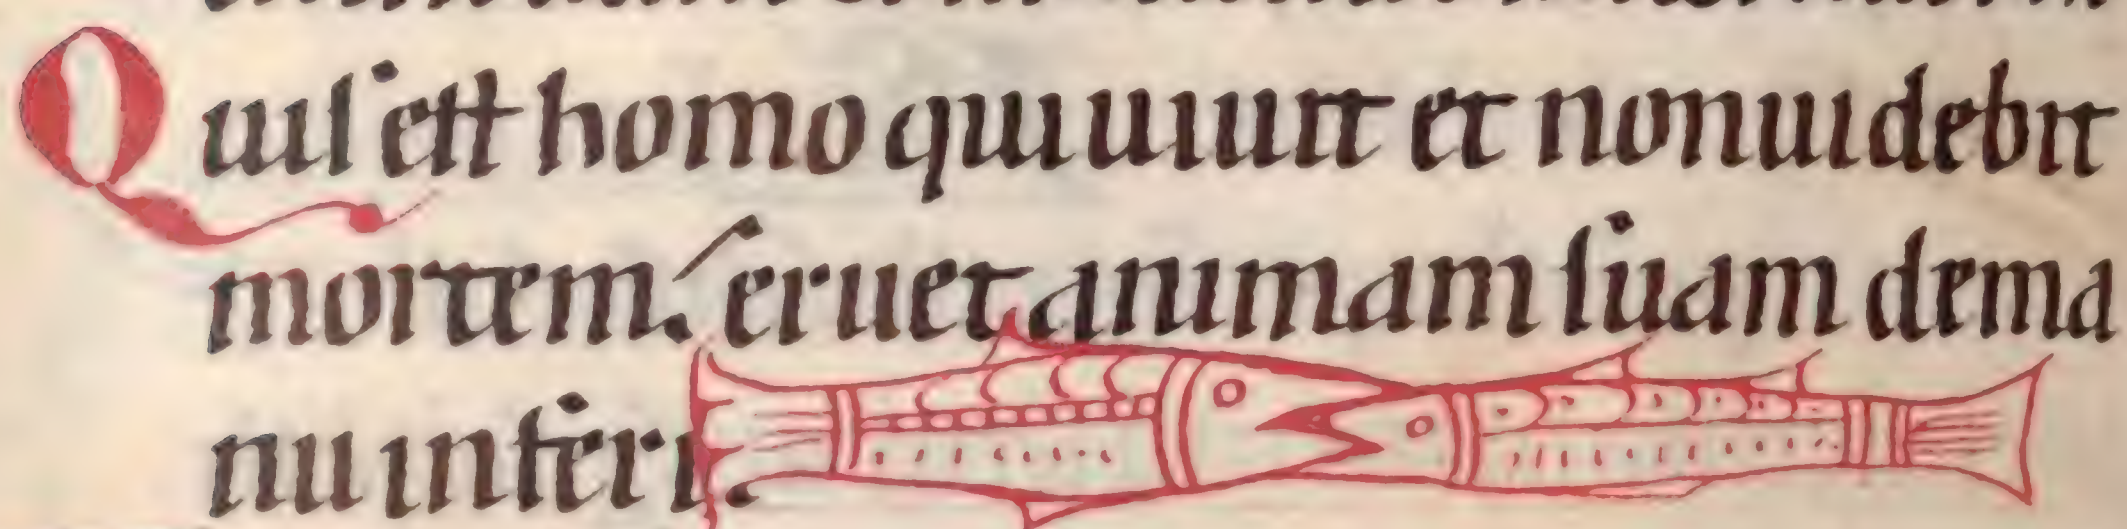 Quis est homo qui uiuit et non uidebit
mortem. eruet animam suam dema
nu inferi.